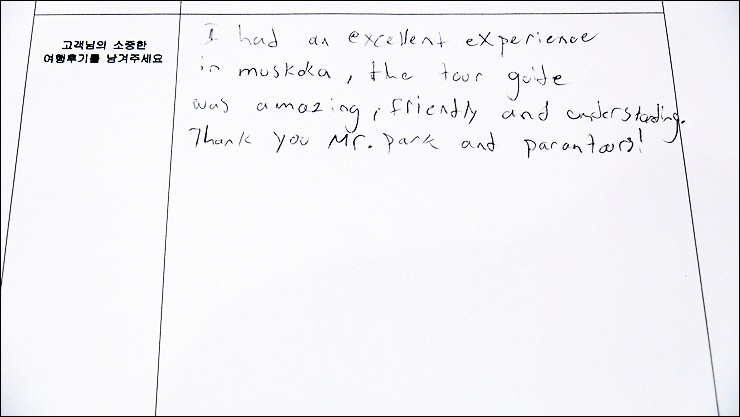 고객님의 소중한
여행후기를 남겨주세요
I had an excellent experience
in muskoka, the tour guide
was amazing, friendly and understanding.
Thank you Mr. park and parantours!